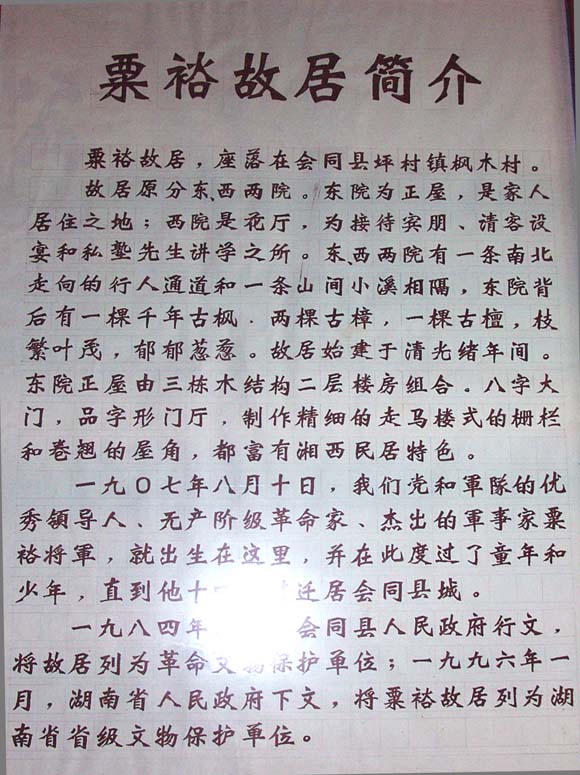 粟裕故居简介
粟裕故居，座落在会同县坪村镇枫木村。
故居原分东、西两院。东院为正屋，是家人
居住之地；西院是花厅，为接待宾朋、清客设
宴和私塾先生讲学之所。东、西两院有一条南北
走向的行人通道和一条山间小溪相隔，东院背
后有一棵千年古枫．两棵古樟，一棵古檀，枝
繁叶茂，郁郁葱葱。故居始建于清光绪年间。
东院正屋由三栋木结构二层楼房组合。八字大
门，品字形门厅，制作精细的走马楼式的栅栏
和卷翘的屋角，都富有湘西民居特色。
一九〇七年八月十日，我们党和軍隊的优
秀領导人、无产阶级革命家、杰出的軍事家粟
裕将軍，就出生在这里，并在此度过了童年和
少年，直到他十迁居会同县城。
一九八四年会同县人民政府行文，
将故居列为革命文物保护单位；一九九六年一
月，湖南省人民政府下文，将粟裕故居列为湖
南省省级文物保护单位。